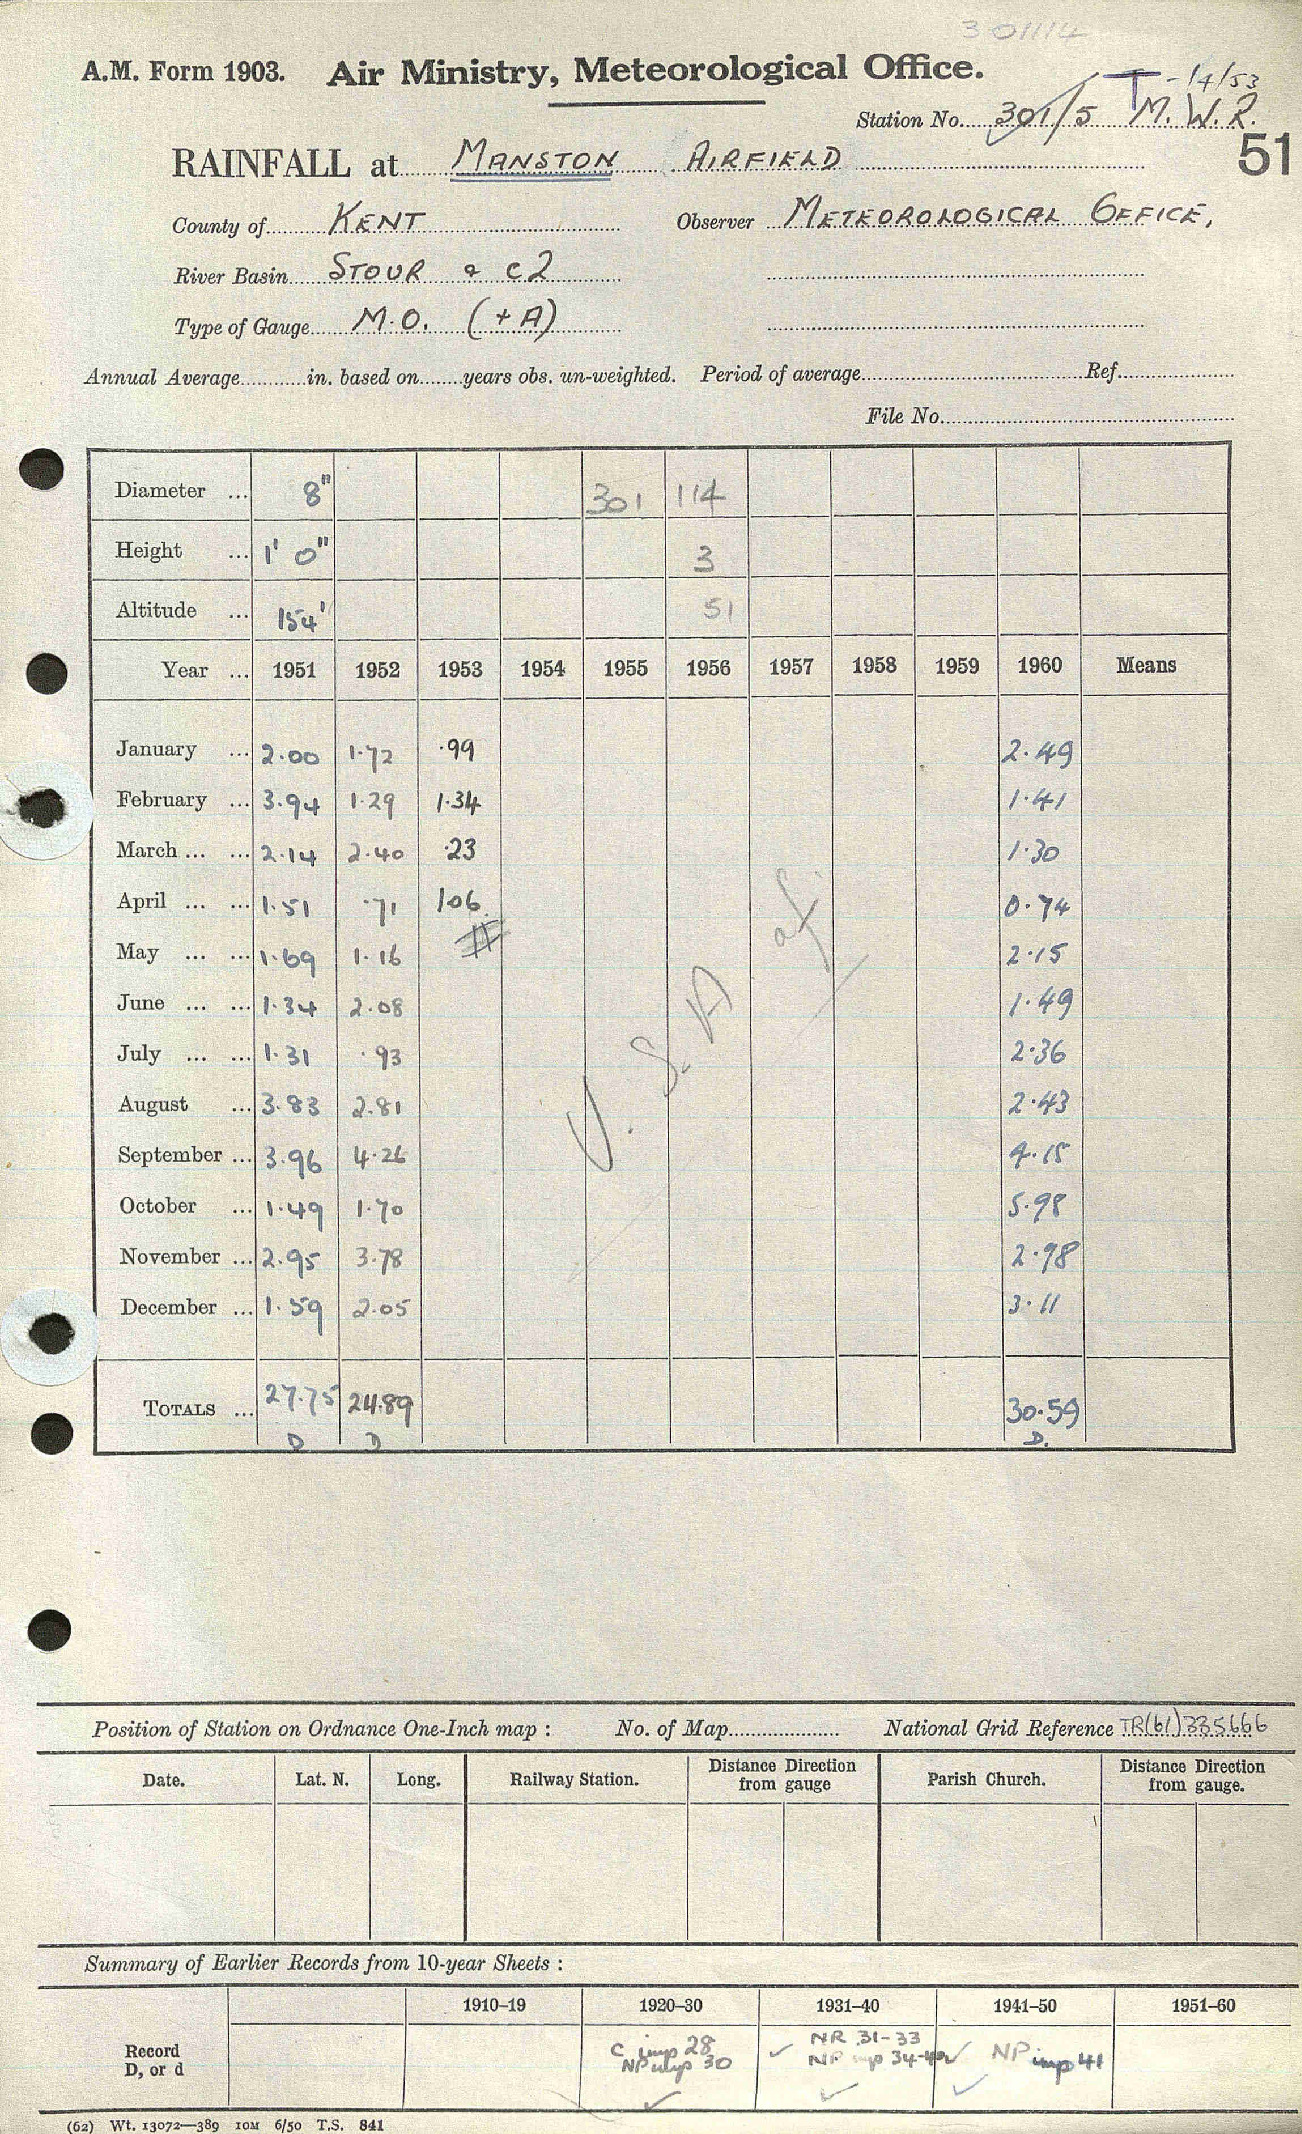 301114
A.M. Form 1903. Air Ministry, Meteorological Office.
T -1/4/53
Station No. 301/5 M.W.R.
51
RAINFALL at MANSTON AIRFIELD
County of KENT Observer METEOROLOGICAL OFFICE,
River Basin STOUR & C2
Type of Gauge M.O. (+A)
Annual Average in. based on years obs. un-weighted. Period of average Ref.
File No.
Diameter ... 8" 301 114
Height ... 1' 0" 3
Altitude ... 154' 51
Year ... 1951 1952 1953 1954 1955 1956 1957 1958 1959 1960 Means
January ... 2.00 1.72 .99 2.49
February ... 3.94 1.29 1.34 1.41
March ... ... 2.14 2.40 .23 1.30
April ... ... 1.51 .71 106 0.74
May ... ... 1.69 1.16 2.15
June ... ... 1.34 2.08 1.49
July ... ... 1.31 .93 2.36
August ... 3.83 2.81 2.43
September ... 3.96 4.26 4.15
October ... 1.49 1.70 5.98
November ... 2.95 3.78 2.98
December ... 1.59 2.05 3.11
U.S.A. af.
TOTALS ... 27.75 24.89 30.59
D D D.
Position of Station on Ordnance One-Inch map : No. of Map National Grid Reference TR(61)335666
Date. Lat. N. Long. Railway Station. Distance Direction from gauge Parish Church. Distance Direction from gauge.
Summary of Earlier Records from 10-year Sheets :
1910–19 1920–30 1931–40 1941–50 1951–60
Record D, or d
C imp 28 NR 31-33 NP imp 41
NP imp 30 NP imp 34-40
(62) Wt. 13072—389 10M 6/50 T.S. 841